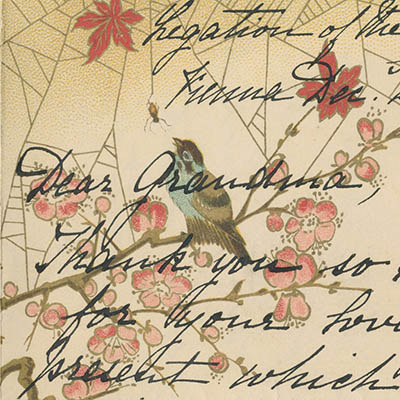 Legation of the
Vienna Dec.
Dear Grandma,
Thank you so
for your
present which